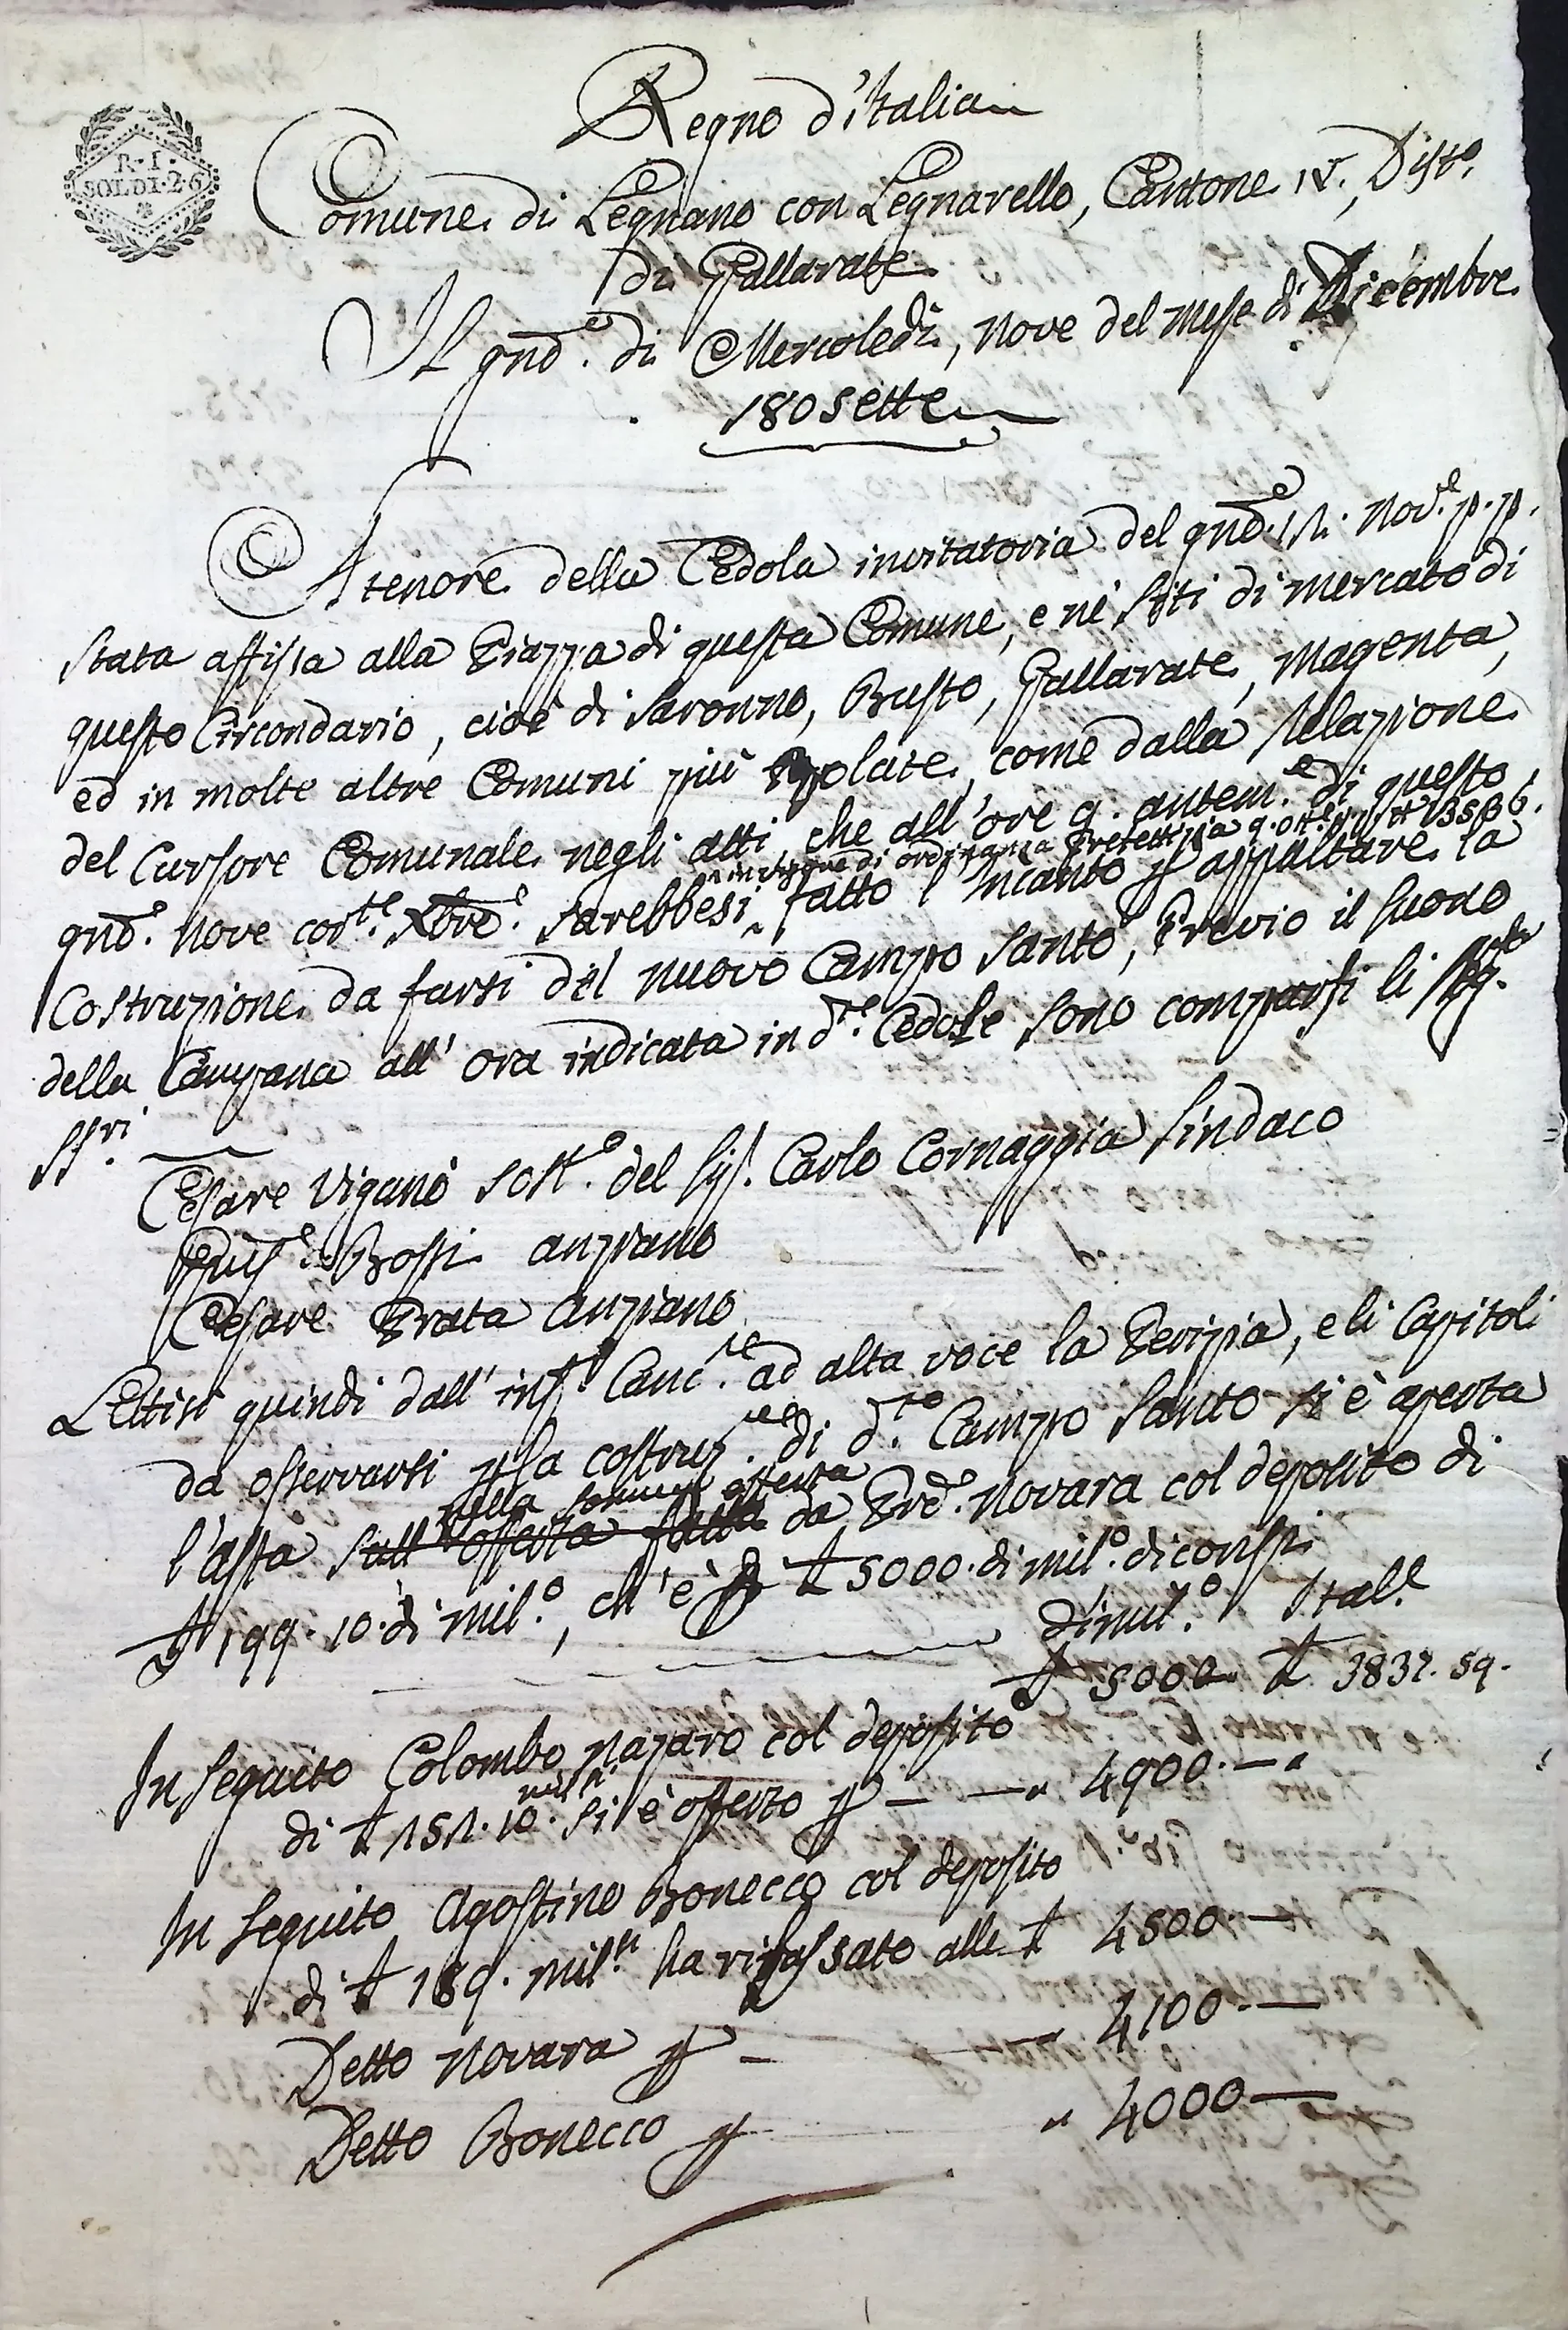 R. I.
SOLDI. 2. 6
Regno d'Italia
Comune di Legnano con Legnarello, Cantone IV., Dist.o
di Gallarate
Il gno. di Mercoledì, Nove del mese di Dicembre
180sette
A tenore della Cedola invitatoria del gno. 11. Nov.e p.p.
stata affissa alla Piazza di questa Comune, e nè siti di mercato di
questo Circondario, cioè di Saronno, Busto, Gallarate, Magenta,
ed in molte altre Comuni più polate, come dalla Relazione
del Cursore Comunale negli atti, che all'ore 9. antem.e di questo
in di ordinanza Prefettizia 9. ott.e p.p. N 13586.
gno. Nove cor.te Xbre. sarebbesi fatto l'Incanto p appaltare la
Costruzione da farsi del nuovo Campo Santo, Previo il suono
della Campana all'ora indicata in d.te Cedole sono comparsi li
SS.ri
Cesare Viganò Sost.o del Sig. Carlo Cornaggia Sindaco
Gius.e Bossi anziano
Cesare Prata Anziano
Lettisi quindi dall'inf.o Canc.re ad alta voce la Perizia, e li Capitoli
da osservarsi p la costruz.ne di d.to Campo Santo si è aperta
nella somma offerta
l'asta sull'offerta fatta da Novara col deposito di
£ 199. 10. di mil.o, ch'è p £ 5000. di mil.o diconsi
di mil.o Ital.e
£ 5000 £ 3837. 59.
In seguito Colombo Nazaro col deposito
di £ 151. 10. mil.si si è offerto p — — " 4900. — "
In seguito Agostino Bonecco col deposito
di £ 189. mil.si ha ribassato alle £ 4500. —
Detto Novara p — — " 4100. —
Detto Bonecco p " 4000 —